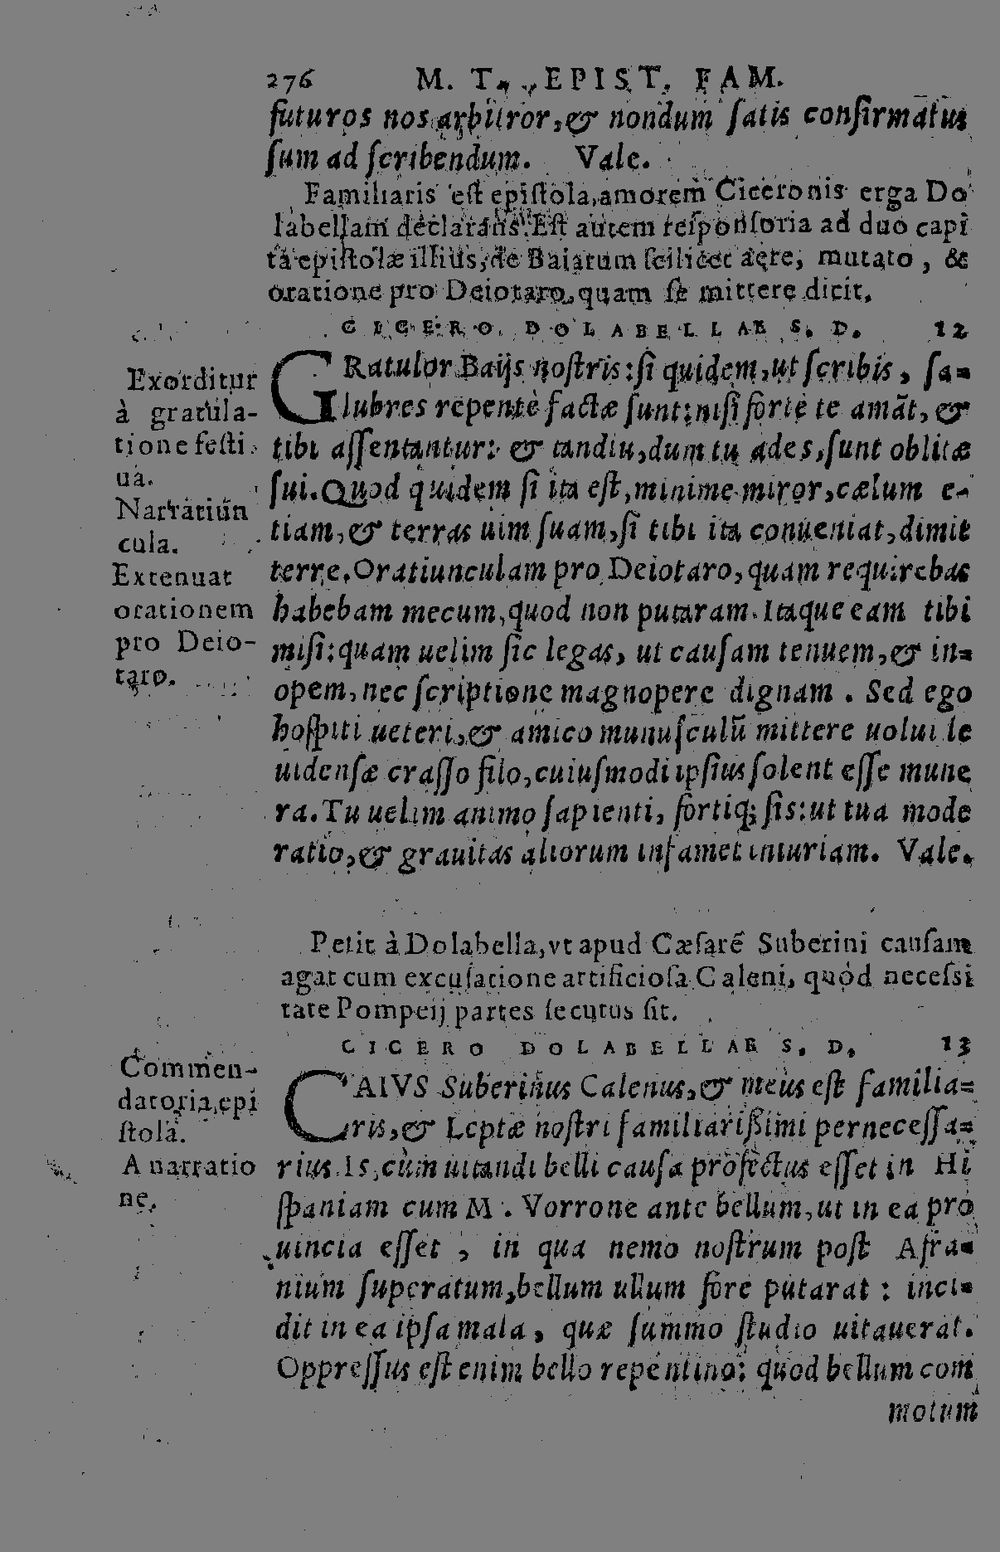 276 M. T. EPIST. FAM.
futuros nos arbitror,& nondum satis confirmatus
sum ad scribendum. Vale.
Familiaris est epistola,amorem Ciceronis erga Do
labellam declarans. Est autem responsoria ad duo capi
ta epistolæ illius,de Baiarum scilicet aere, mutato , &
oratione pro Deiotaro,quam se mittere dicit.
CICERO DOLABELLAE S. D. 12
GRatulor Baijs nostris:si quidem,ut scribis, sa-
lubres repente factæ sunt:nisi forte te amãt, &
tibi assentantur: & tandiu,dum tu ades,sunt oblitæ
sui.Quod quidem si ita est,minime miror,cælum e-
tiam,& terras uim suam,si tibi ita conueniat,dimit
terre.Oratiunculam pro Deiotaro,quam requirebas
habebam mecum,quod non putaram.Itaque eam tibi
misi:quam uelim sic legas, ut causam tenuem,& in-
opem,nec scriptione magnopere dignam . Sed ego
hospiti ueteri,& amico munusculũ mittere uolui le
uidensæ crasso filo,cuiusmodi ipsius solent esse mune
ra.Tu uelim animo sapienti, fortiq; sis:ut tua mode
ratio,& grauitas aliorum infamet iniuriam. Vale.
Exorditur
à gratula-
tione festi
ua.
Narratiũn
cula.
Extenuat
orationem
pro Deio-
taro.
Petit à Dolabella,vt apud Cæsarẽ Suberini causam
agat cum excusatione artificiosa Caleni, quòd necessi
tate Pompeij partes secutus sit.
CICERO DOLABELLAE S. D. 13
CAIVS Suberinus Calenus,& meus est familia-
ris,& Leptæ nostri familiarissimi pernecessa-
rius.Is,cùm uitandi belli causa profectus esset in Hi
spaniam cum M . Vorrone ante bellum,ut in ea pro
uincia esset , in qua nemo nostrum post Afra-
nium superatum,bellum ullum fore putarat : inci-
dit in ea ipsa mala, quæ summo studio uitauerat.
Oppressus est enim bello repentino: quod bellum com
motum
Commen-
datoria,epi
stola.
A narratio
ne.